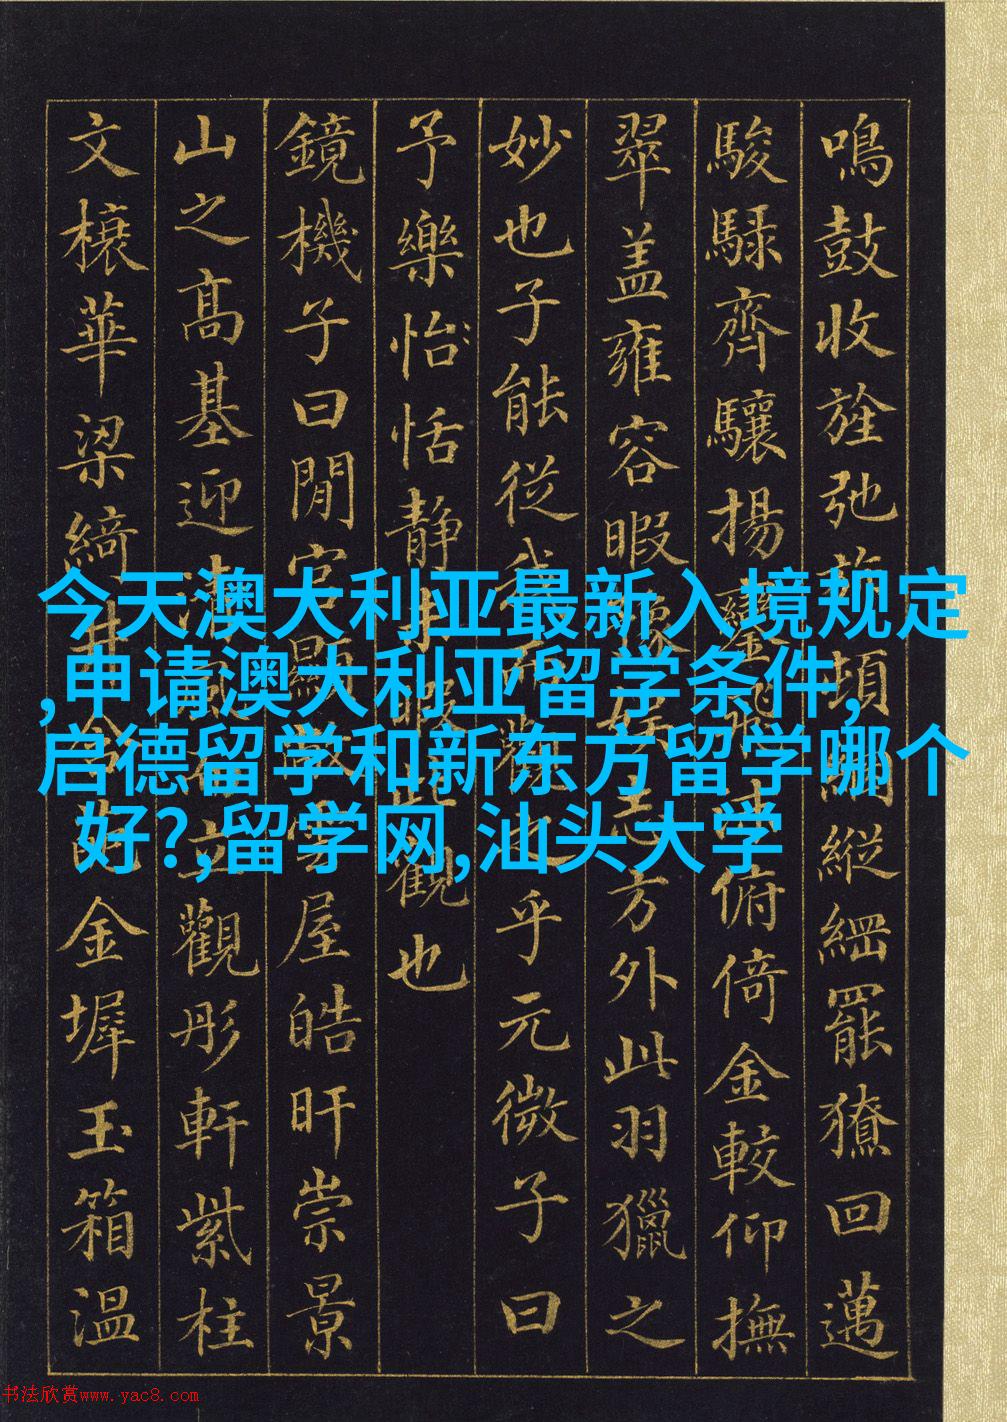 今天澳大利亚最新入境规定
,申请澳大利亚留学条件,
启德留学和新东方留学哪个
好?,留学网,汕头大学
鳴鼓收旌弛頓縱罷獠回邁
駿騄齊驤揚俯倚金較仰撫
翠盖雍容暇方外此羽獵之
妙也子能從乎元微子曰
予樂怡恬静觀也
鏡機子曰閒宮顯屋皓旰崇景
山之高基迎立觀彤軒紫柱
文榱華梁綺金墀玉箱温
书法欣赏www.yac8.com